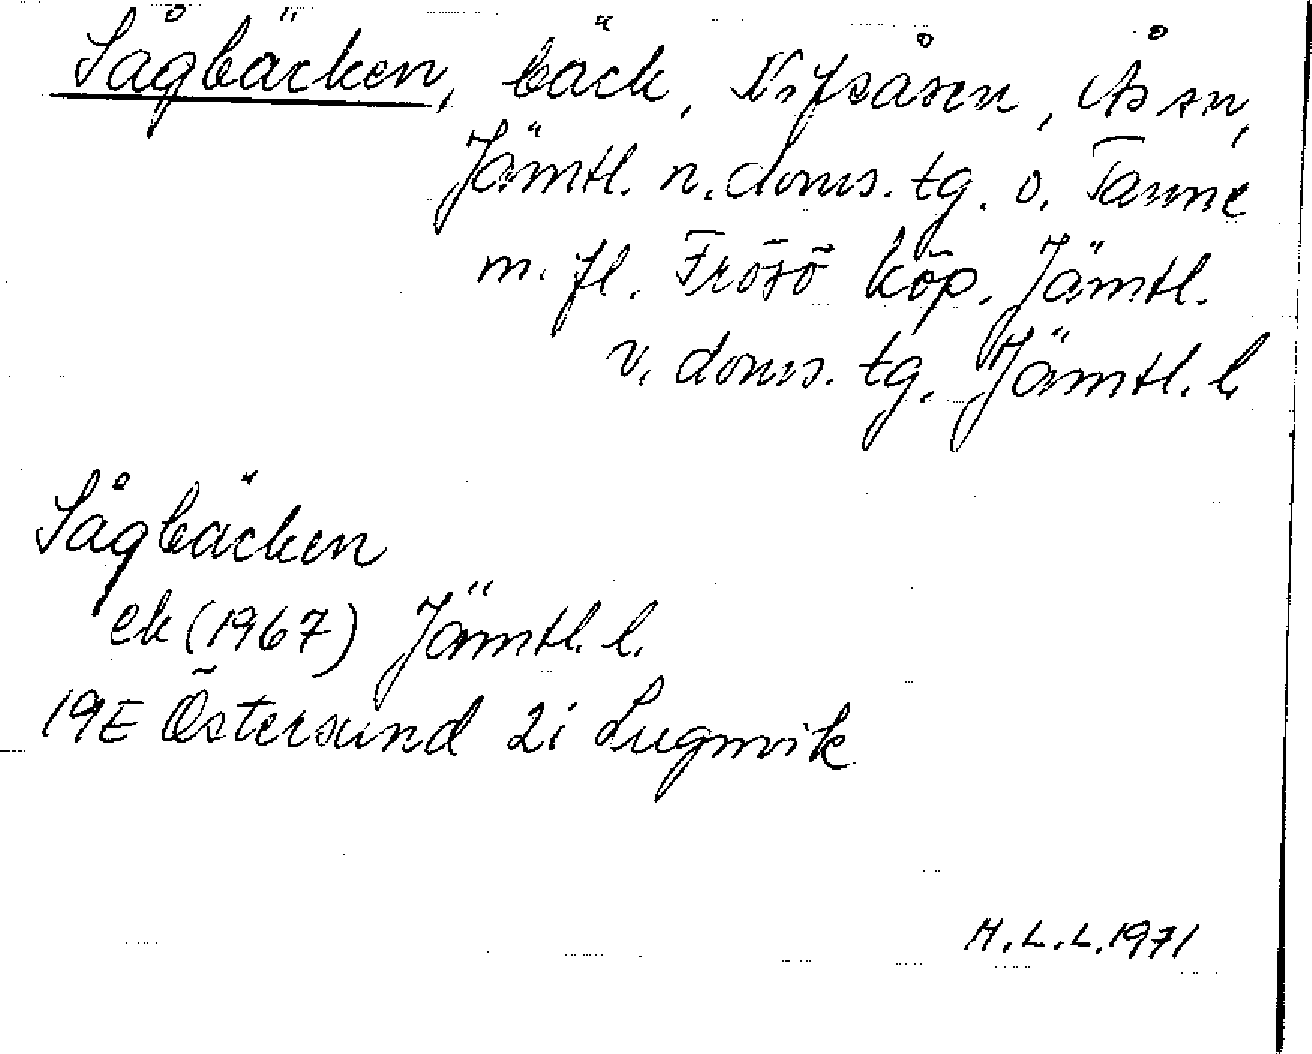 Sågbäcken, bäck, Nifsåsen, Ås sn,
Jämtl. n. doms. tg. o. Tanne
m. fl. Frösö köp. Jämtl.
v. doms. tg. Jämtl. l.
Sågbäcken
ek (1967) Jämtl. l.
19E Östersund 2i Lugnvik
H.L.L. 1971